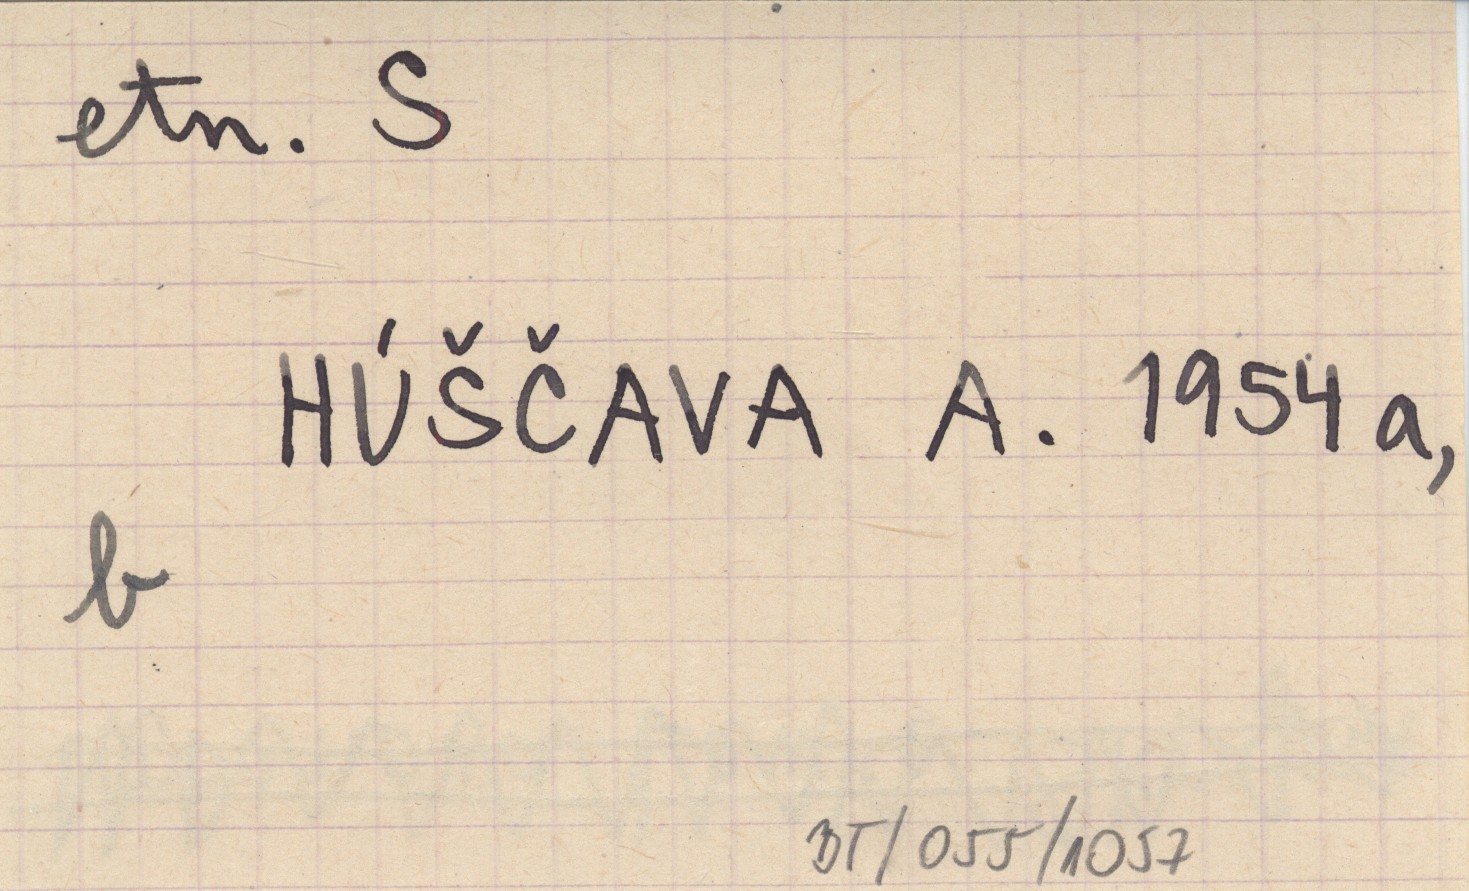 etn. S
HÚŠČAVA A. 1954 a,
b
BT/055/1057